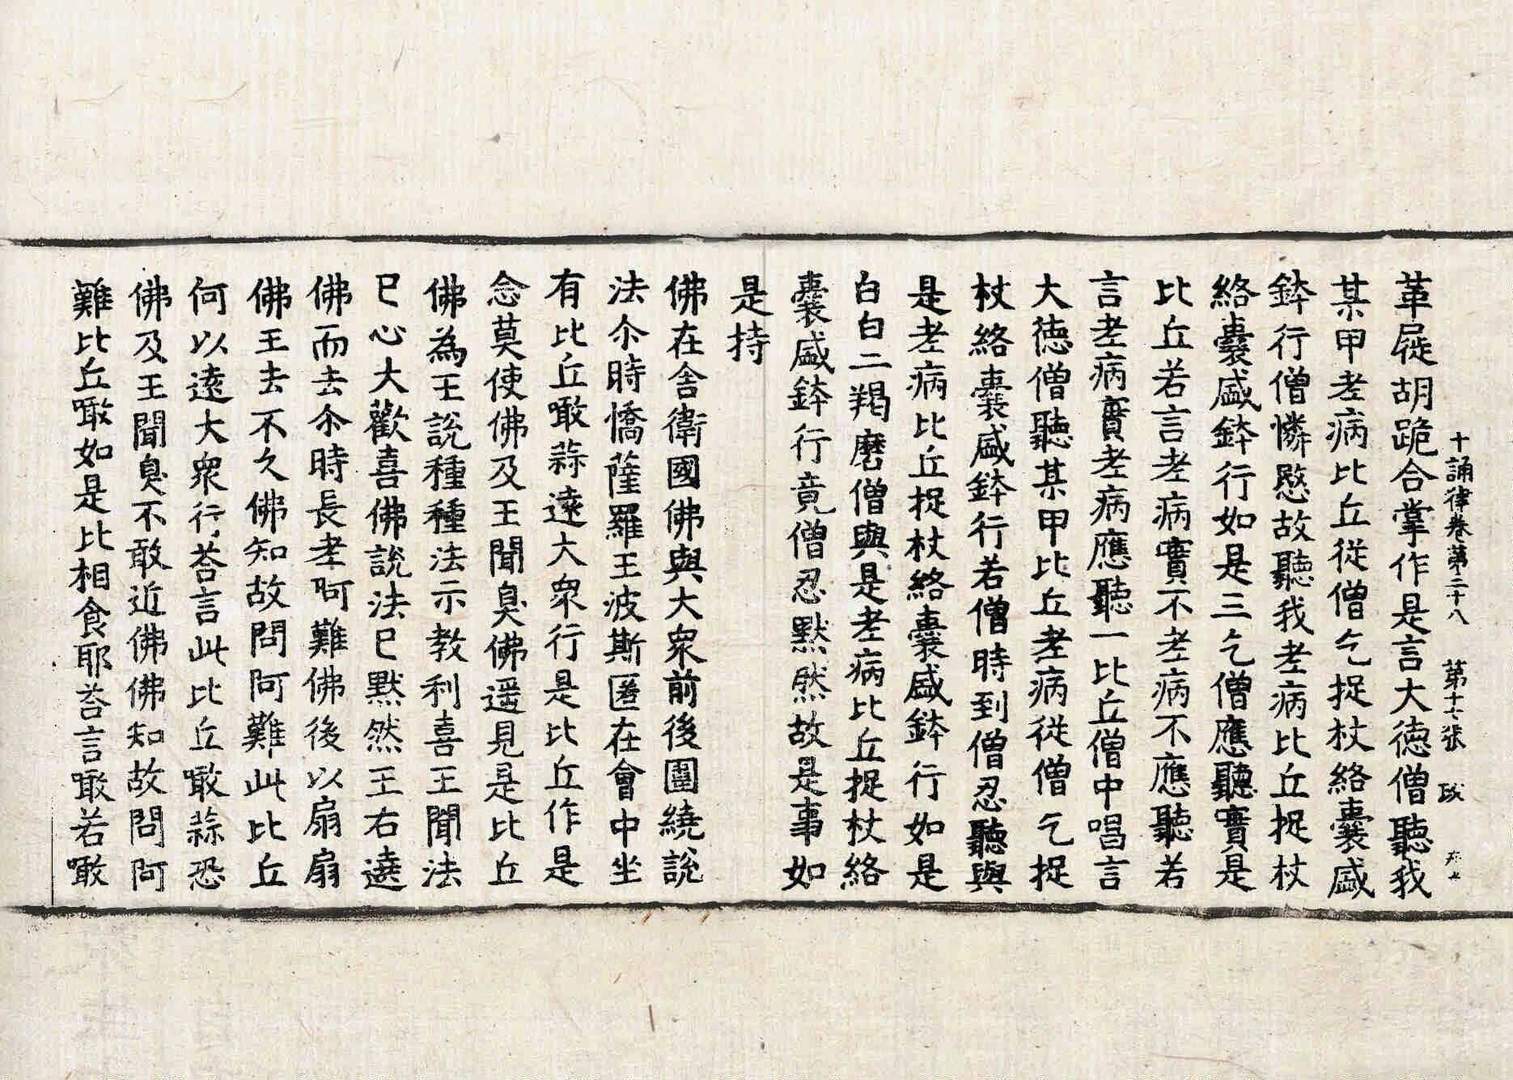 十誦律卷第三十八 第十七張 政
革屣胡跪合掌作是言大德僧聽我
某甲老病比丘從僧乞捉杖絡囊盛
鉢行僧憐愍故聽我老病比丘捉杖
絡囊盛鉢行如是三乞僧應聽實是
比丘若言老病實不老病不應聽若
言老病實老病應聽一比丘僧中唱言
大德僧聽某甲比丘老病從僧乞捉
杖絡囊盛鉢行若僧時到僧忍聽與
是老病比丘捉杖絡囊盛鉢行如是
白白二羯磨僧與是老病比丘捉杖絡
囊盛鉢行竟僧忍默然故是事如
是持
佛在舍衛國佛與大衆前後圍繞說
法尒時憍薩羅王波斯匿在會中坐
有比丘噉蒜遠大衆行是比丘作是
念莫使佛及王聞臭佛遥見是比丘
佛為王說種種法示教利喜王聞法
已心大歡喜佛說法已默然王右遶
佛而去尒時長老阿難佛後以扇扇
佛王去不久佛知故問阿難此比丘
何以遠大衆行荅言此比丘噉蒜恐
佛及王聞臭不敢近佛佛知故問阿
難比丘噉如是比相食耶荅言噉若噉